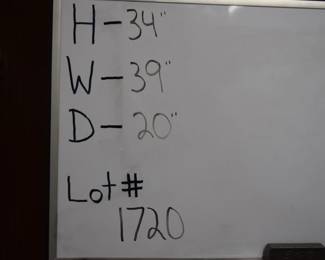 H-34"
W-39"
D-20"
Lot#
1720